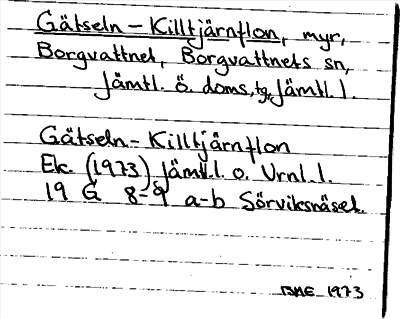 Gätseln - Killtjärnflon, myr,
Borgvattnet, Borgvattnets sn,
Jämtl. ö. doms. tg, Jämtl. l.
Gätseln - Killtjärnflon
Ek. (1973) Jämtl. l. o. Vrnl. l.
19 G 8-9 a-b Sörviksnäset.
1973